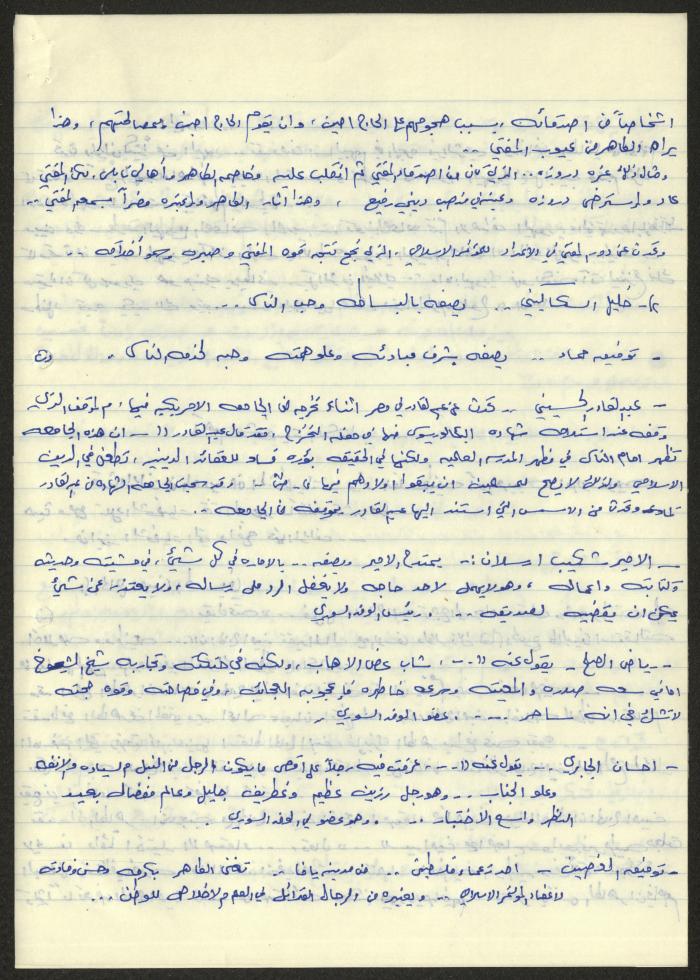 اشخاصاً من اصدقائه، بسبب هجومهم على الحاج امين، وان يقوم الحاج امين بمصالحتهم، وهذا
يراه الطاهر من عيوب المفتي ..
ومثال ذلك عزه دروزه .. الذي كان من اصدقاء المفتي ثم انقلب عليه وخاصمه الطاهر وأهالي نابلس، لكن المفتي
عاد واسترضى دروزه وعينه في منصب ديني رفيع ، وهذا أثار الطاهر واعتبره مضراً بسمعة المفتي ..
وتحدث عن دور المفتي في الاعداد للمؤتمر الاسلامي الذي نجح نتيجه قوه المفتي وصبره وسمو أخلاقه ..
٢- خليل السكاكيني .. يصفه بالبساطه وحب الناس ...
- توفيق حماد .. يصفه بشرف مبادئه وعلو همته وحبه لخدمة الناس . (٥)
- عبد القادر الحسيني .. تحدث عن عبد القادر في مصر اثناء تخرجه من الجامعه الامريكيه فيها، والموقف الذي
وقفه عند استلامه شهاده البكالوريوس فيها في حفله التخرج، فقد قال عبد القادر (( - ان هذه الجامعه
تظهر امام الناس في مظهر المدرسه العاليه ولكنها في الحقيقه بؤره فساد للعقائد الدينيه، تطعن في الدين
الاسلامي ولذلك لا يصح للمسلمين ان يبقوا اولادهم فيها .. وقد سحبت الجامعه الشهاده من عبد القادر
وتحدث عن الاسس التي استند اليها عبد القادر بموقفه من الجامعه ..
- الامير شكيب ارسلان :- يمتدح الامير ويصفه .. بالاماره في كل شيئ، في مشيته وحديثه
وكتابته واعماله ، وهو لا يهمل لاحد حاجه ولا يغفل الرد على رساله، ولا يعتذر عن شيئ
يمكن ان يقضيه لصديقه .... رئيس الوفد السوري
- رياض الصلح - يقول عنه (( ...، شاب غض الاهاب، ولكنه في حنكته وتجاربه شيخ الشيوخ
اما في سعه صدره والمعيته وسرعه خاطره فاعجوبه العجائب، وفي فصاحته وقوه حجته
لا تشك في انه ساحر ..... عضو الوفد السوري ،
- احسان الجابري .. يقول عنه (( ... عرفت فيه رجلاً على اقصى ما يكون الرجل من النبل والسياده والانفه
وعلو الجناب .. وهو رجل رزين عظيم وغطريف جليل وعالم مفضال بعيد
النظر واسع الاختبار .... وهو عضو في الوفد السوري .
- توفيق الغصين - احد زعماء فلسطين .. من مدينه يافا .. تغنى الطاهر بكرمه وحسن وفادته
لاعضاء المؤتمر الاسلامي .. ويعتبره من الرجال القلائل في العلم والاخلاص للوطن ...